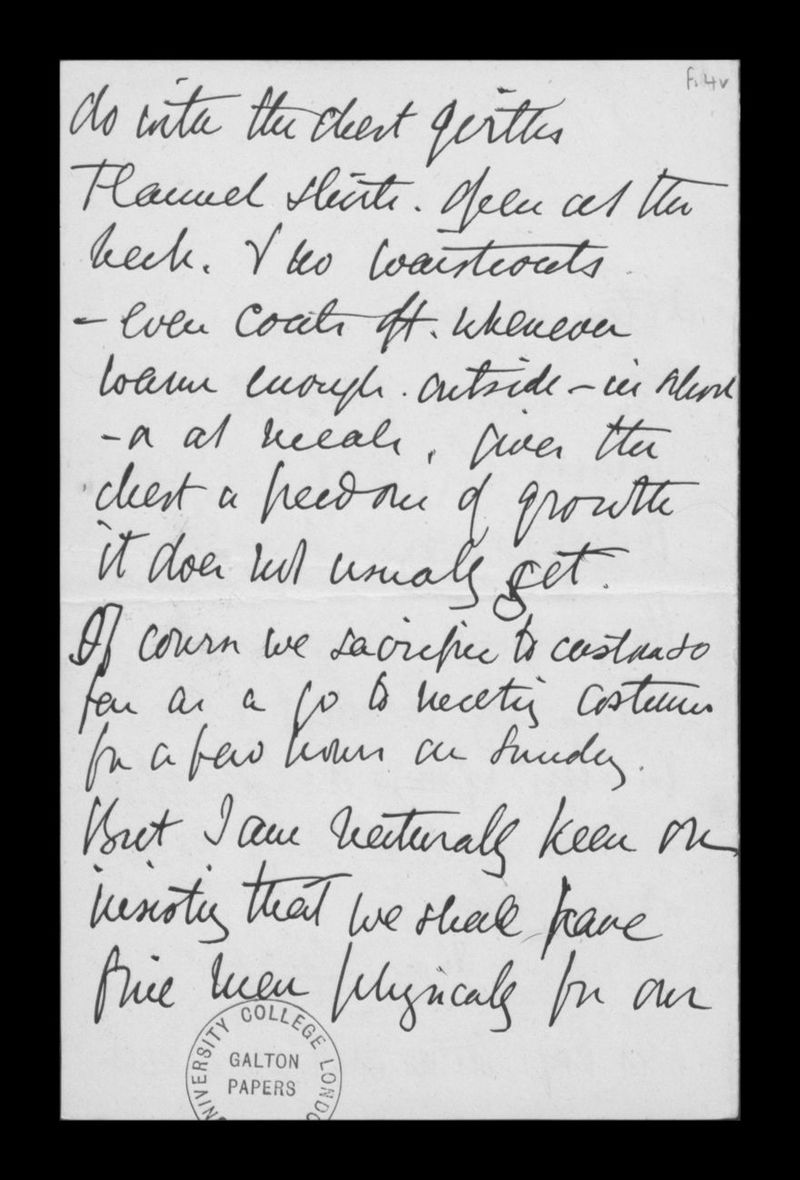 f. 4v
do with the chest girths
Flannel shirts. Open at the
neck. & no waistcoats
- even coats off. whenever
warm enough. outside - in school
- or at meals, gives the
chest a freedom of growth
it does not usually get.
Of course we sacrifice to custom so
far as a go to meeting costume
for a few hours on Sunday.
But I am naturally keen on
insisting that we shall have
fine men physically for our
UNIVERSITY COLLEGE LONDO
GALTON
PAPERS